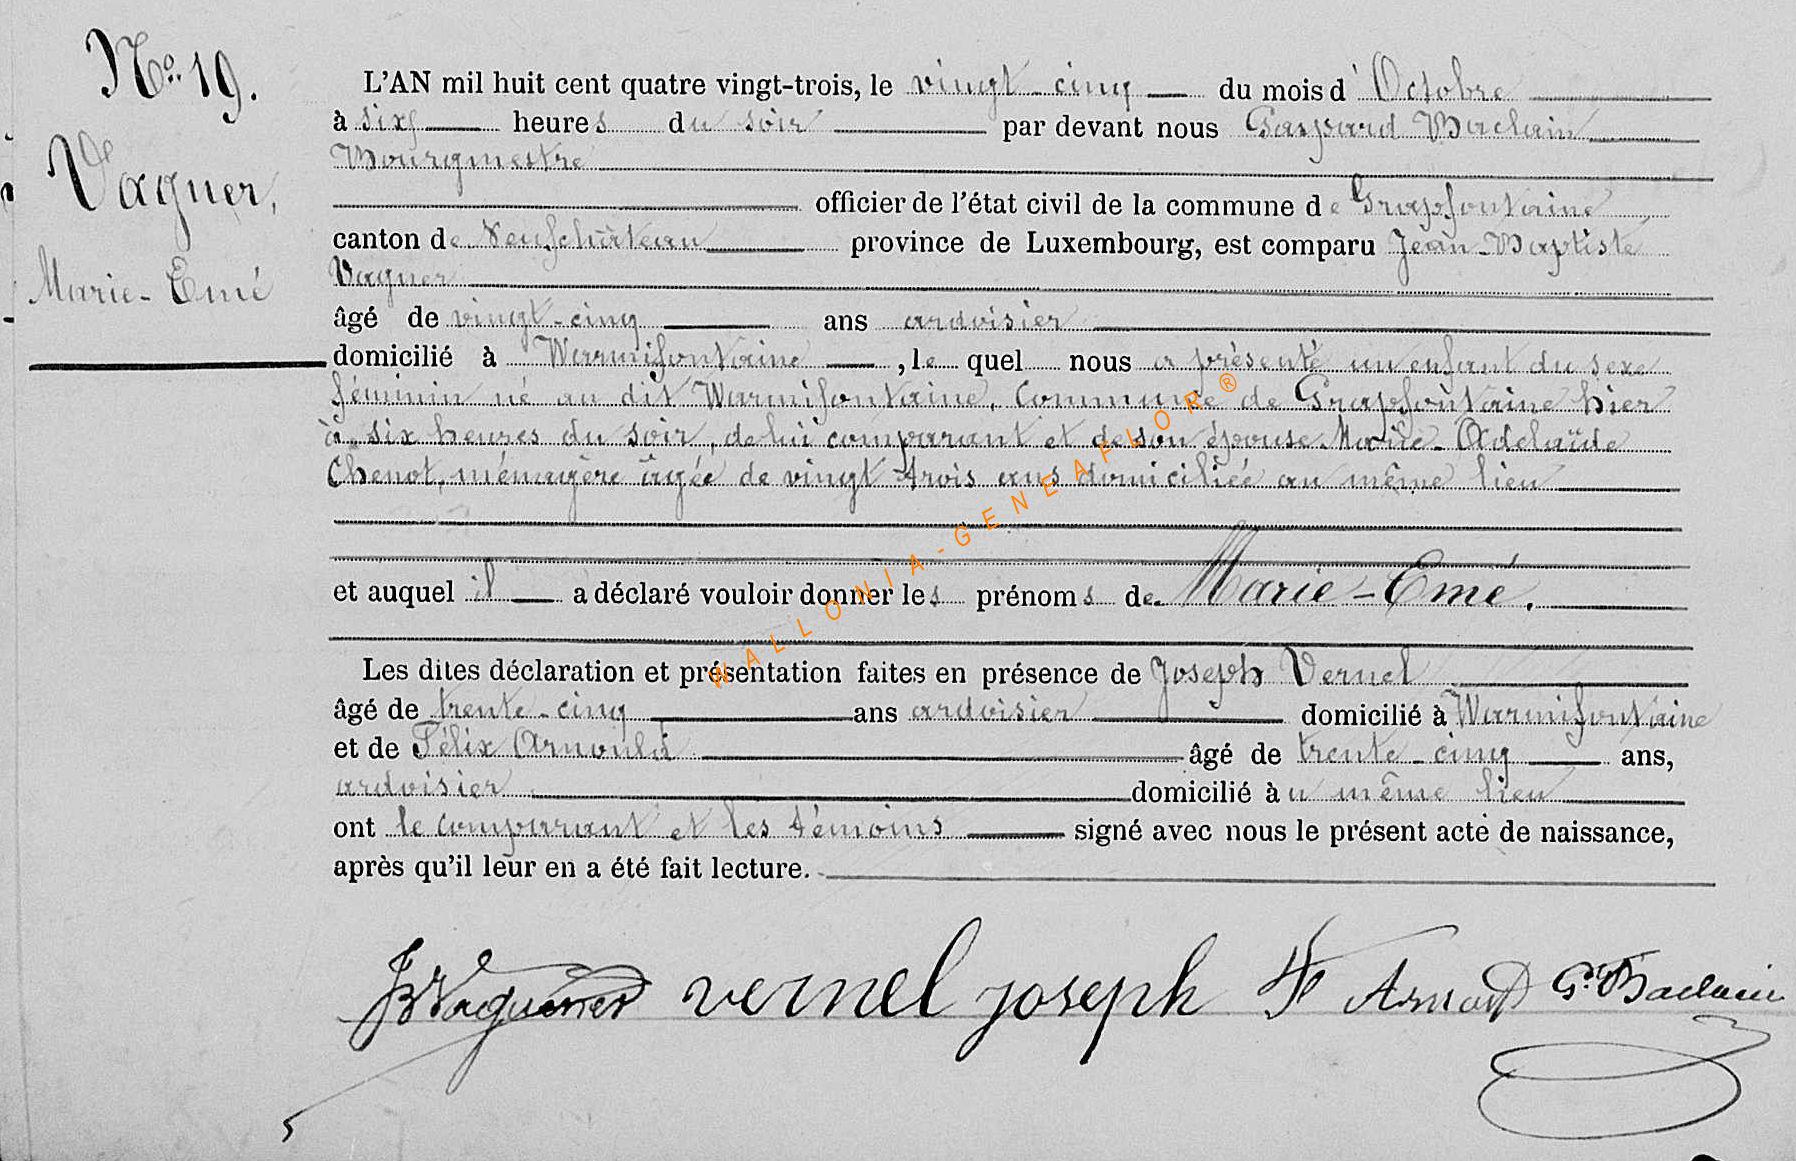 No 19.
Vaguer,
Marie-Emé
L'AN mil huit cent quatre vingt-trois, le vingt-cinq du mois d'Octobre
à six heures du soir par devant nous Gaspard Baclain
Bourgmestre
officier de l'état civil de la commune de Grapfontaine
canton de Neufchâteau province de Luxembourg, est comparu Jean-Baptiste
Vaguer
âgé de vingt-cinq ans ardoisier
domicilié à Warmifontaine, le quel nous a présenté un enfant du sexe
féminin né au dit Warmifontaine, Commune de Grapfontaine hier
à six heures du soir, de lui comparant et de son épouse Marie-Adelaïde
Chenot, ménagère âgée de vingt trois ans domiciliée au même lieu
et auquel il a déclaré vouloir donner les prénoms de Marie-Emé.
Les dites déclaration et présentation faites en présence de Joseph Vernel
âgé de trente-cinq ans ardoisier domicilié à Warmifontaine
et de Félix Arnould âgé de trente-cinq ans,
ardoisier domicilié au même lieu
ont le comparant et les témoins signé avec nous le présent acte de naissance,
après qu'il leur en a été fait lecture.
JB Vaguener vernel joseph F Arnould G. Baclain
WALLONIA-GENEAFLOR®